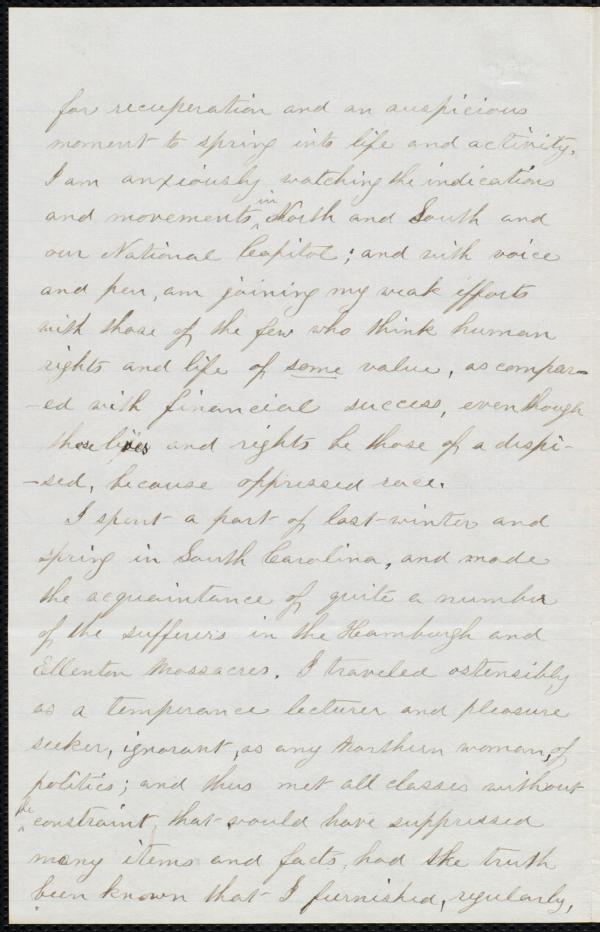 for recuperation and an auspicious
moment to spring into life and activity.
I am anxiously watching the indications
and movements, in North and South and
our National Capitol; and with voice
and pen, am joining my weak efforts
with those of the few who think human
rights and life of some value, as compar-
-ed with financial success, even though
those lives and rights be those of a despi-
-sed, because oppressed race.
I spent a part of last winter and
spring in South Carolina, and made
the acquaintance of quite a number
of the sufferers in the Hamburgh and
Ellenton Massacres. I traveled ostensibly
as a temperance lecturer and pleasure
seeker, ignorant, as any Northern woman, of
politics; and thus met all classes without
the constraint, that would have suppressed
many items and facts, had the truth
been known that I furnished, regularly,